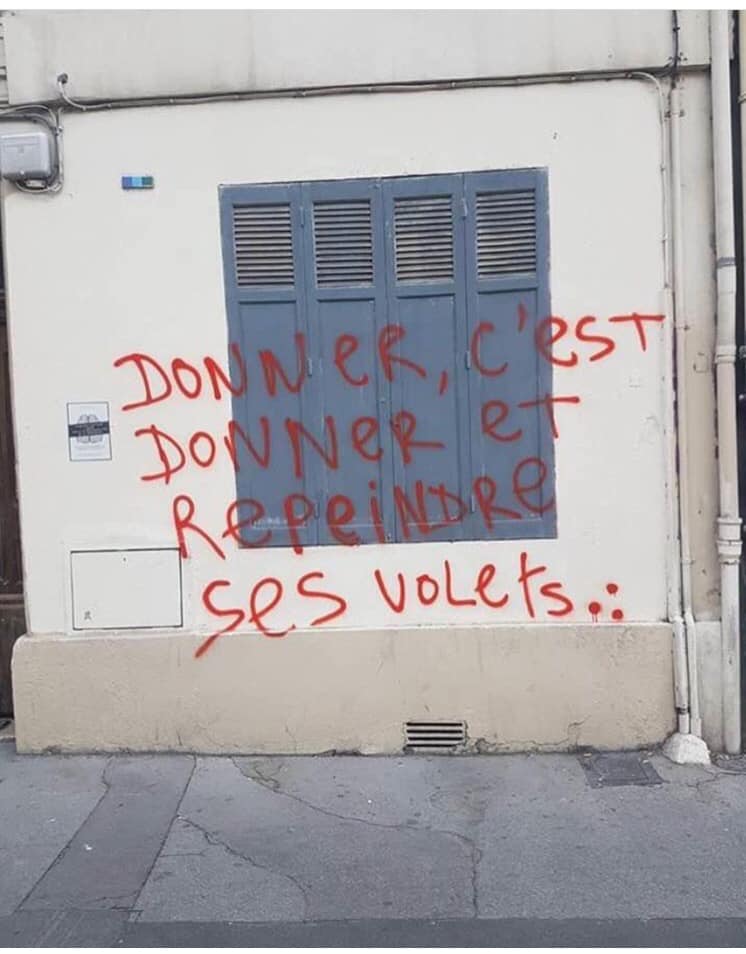 DONNER, C'EST
DONNER ET
REPEINDRE
SES VOLETS...